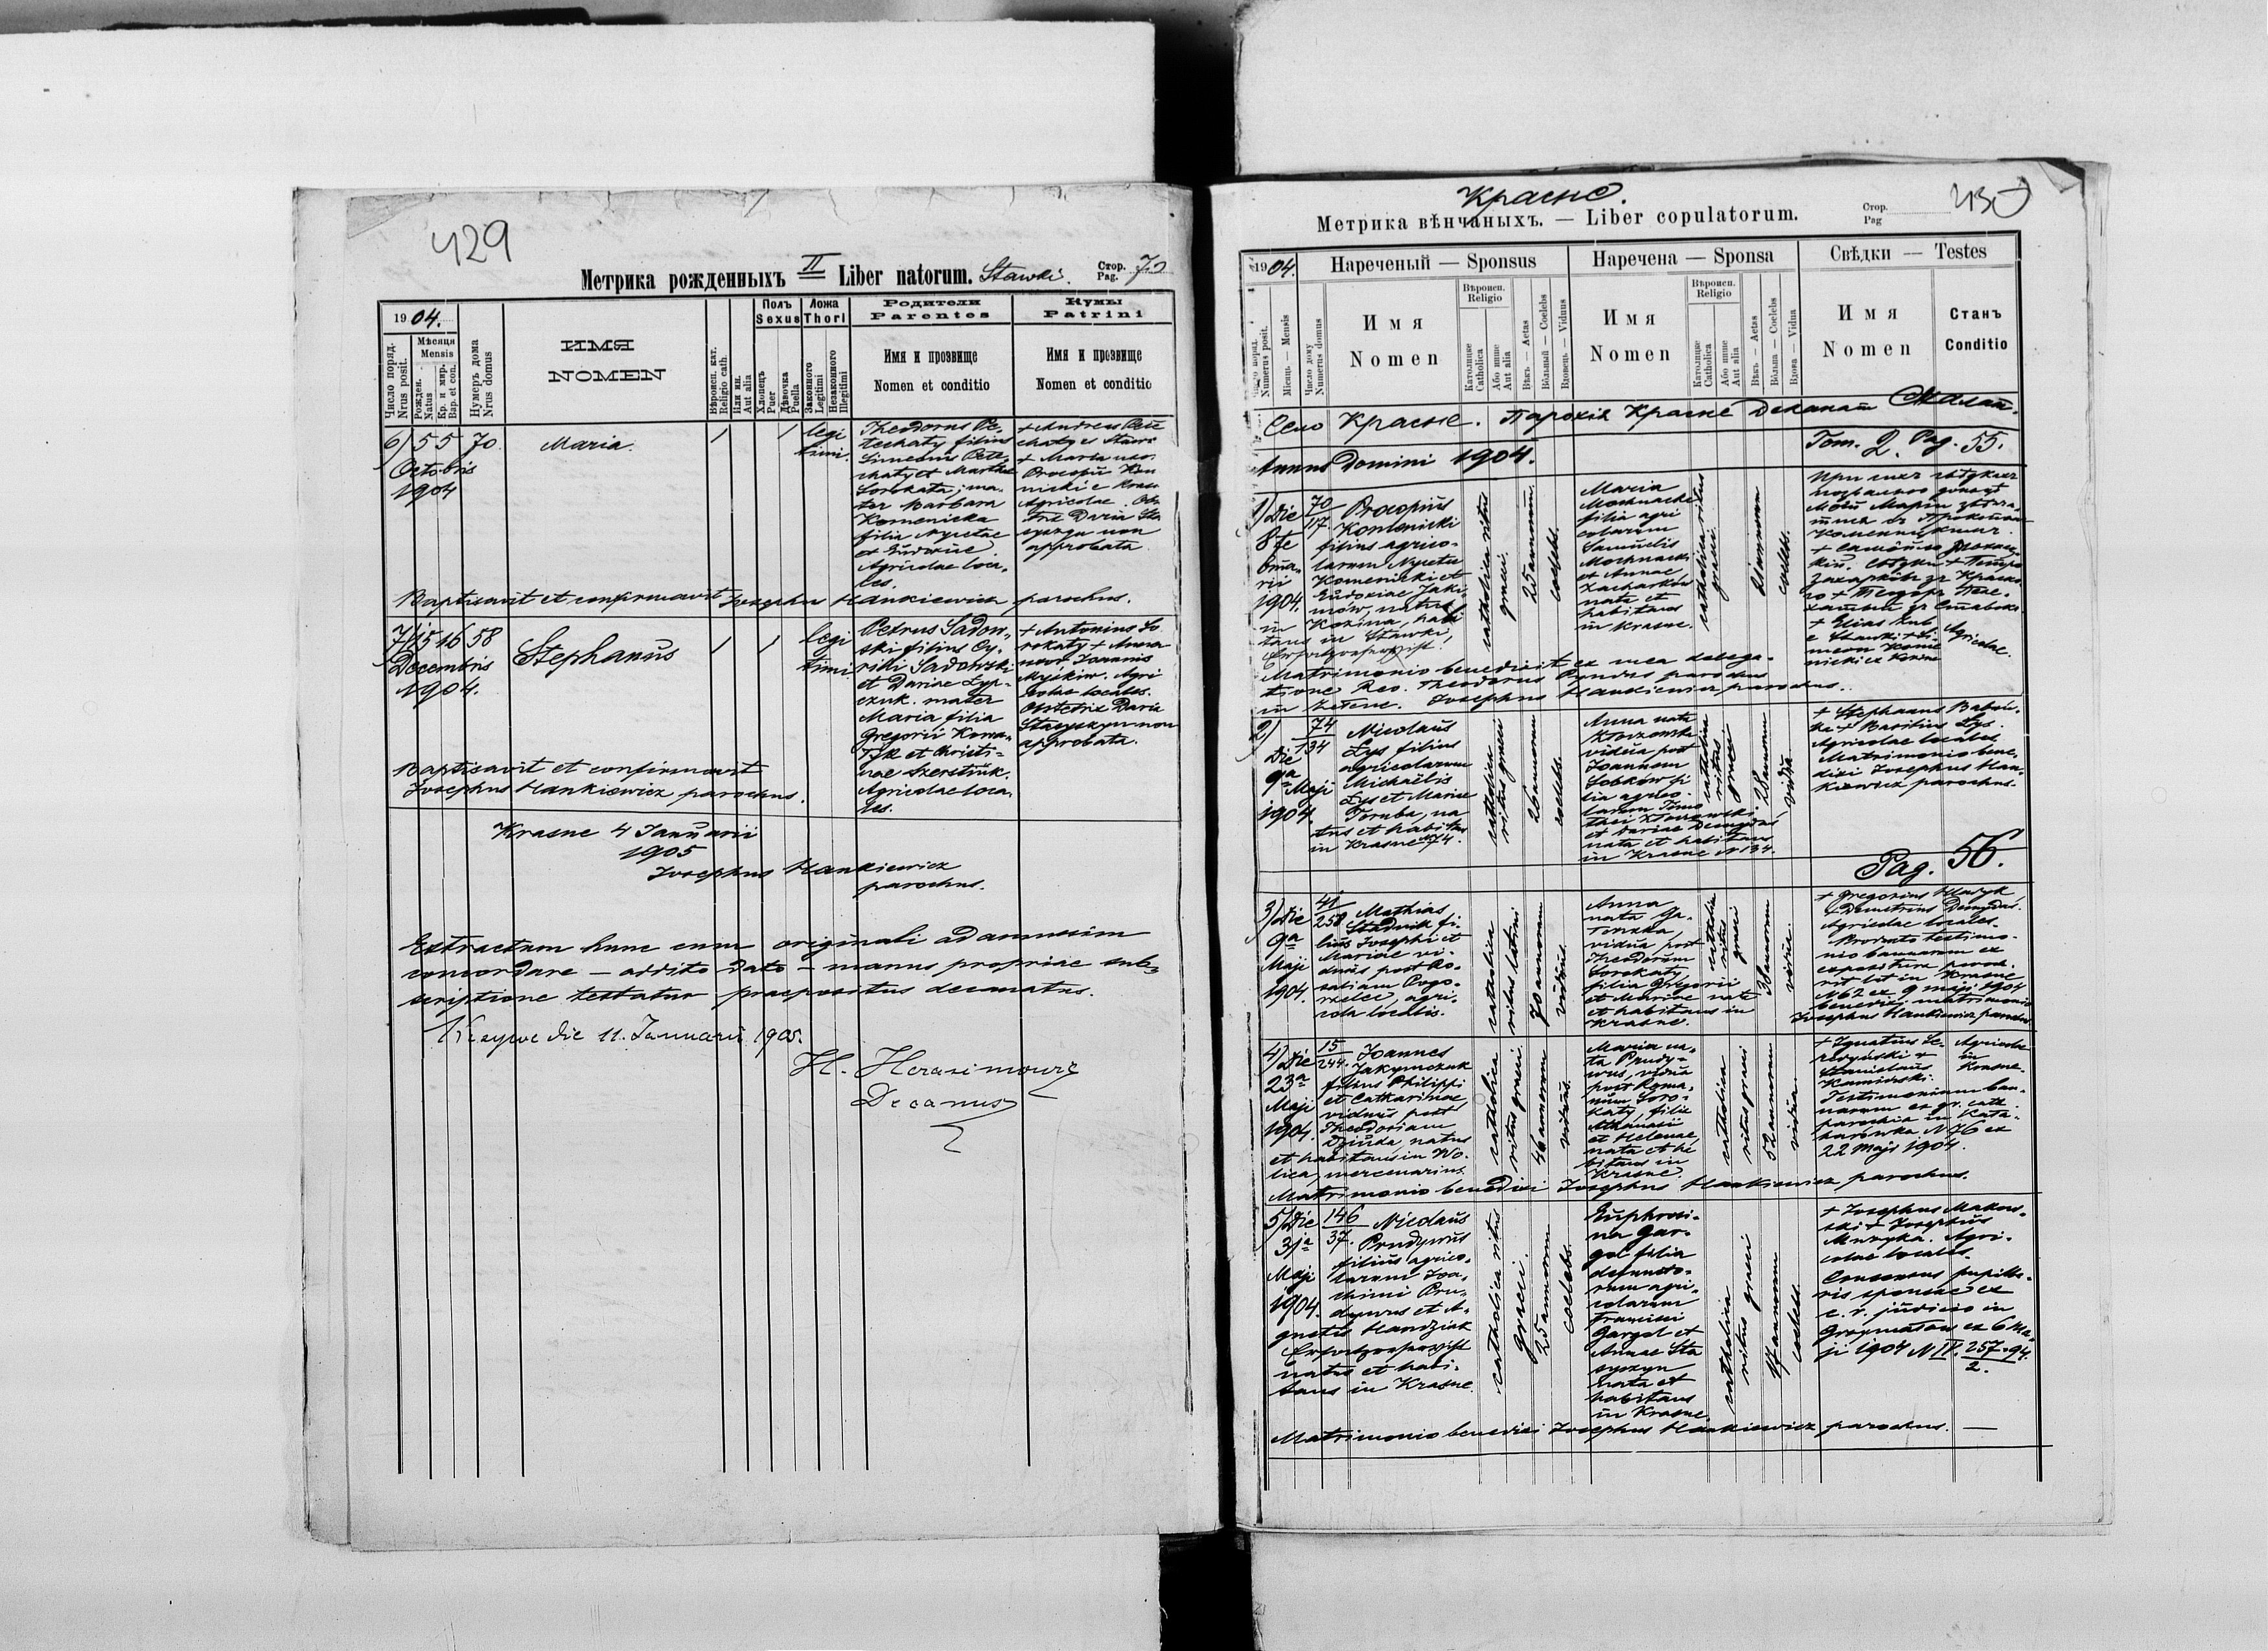 429
Метрика рожденныхъ II Liber natorum. Stawki. Стор. Pag. 70
1904.
Число поряд. Nrus posit.
Мѣсяця Mensis
Рожден. Natus
Кр. и мир. Bap. et con.
Нумеръ дома Nrus domus
ИМЯ
NOMEN
Вѣроисп. кат. Religio cath.
Или ин. Aut alia
Полъ Sexus
Хлопець Puer
Дѣвочка Puella
Ложа Thori
Законного Legitimi
Незаконного Illegitimi
Родители
Parentes
Имя и прозвище
Nomen et conditio
Кумы
Patrini
Имя и прозвище
Nomen et conditio
6) 5 5 70
Octobris
1904
Maria
1 1 legi
timi.
Theodorus Pe-
techaty filius
Simeonis Pete-
chaty et Marthae
Sorokata; ma-
ter Barbara
Komenicka
filia Nycetae
et Eudoxiae
Agricolae loca-
les.
+ Andreas Pete
chaty e Stawki
+ Maria uxor
Procopii Kom
nicki e Krasn
Agricolae. Obs
trix Daria Sta
syszyn non
approbata
Baptisavit et confirmavit Josephus Hankiewicz parochus.
7) 15 16 58
Decembris
1904.
Stephanus
1 1 legi
timi.
Petrus Sadow-
ski filius Cy-
rilli Sadowski
et Dariae Łyp-
czuk. mater
Maria filia
Gregorii Kowa-
łyk et Christi-
nae Szerstiuk.
Agricolae loca-
les.
+ Antonius So
rokaty + Anna
uxor Joannis
Myskiw. Agri
colae locales.
Obstetrix Daria
Stasyszyn non
approbata.
Baptisavit et confirmavit
Josephus Hankiewicz parochus.
Krasne 4 Januarii
1905
Josephus Hankiewicz
parochus.
Extractum hunc cum originali ad amussim
concordare — addito dato — manus propriae sub-
scriptione testatur praepositus decanatus.
die 11. Januarii 1905.
H. Herasimowicz
Decanus
Красне.
Метрика вѣнчаныхъ. — Liber copulatorum.
Стор.
Pag
430
1904.
Нареченый — Sponsus
Наречена — Sponsa
Свѣдки — Testes
Число поряд. Numerus posit.
Місяць — Mensis
Число дому Numerus domus
Имя
Nomen
Вѣроисп. Religio
Католицке Catholica
Або инше Aut alia
Вѣкъ — Aetas
Вôльный — Coelebs
Вдовець — Viduus
Имя
Nomen
Вѣроисп. Religio
Католицке Catholica
Або инше Aut alia
Вѣкъ — Aetas
Вôльна — Coelebs
Вдова — Vidua
Имя
Nomen
Станъ
Conditio
Село Красне. Парохія Красне Деканат Скалат.
Annus Domini 1904.
Tom. 2. Pag. 55.
1) Die
8 Fe
brua-
rii
1904.
70
117.
Procopius
Komenicki
filius agrico-
larum Nycetae
Komenicki et
Eudoxiae Jaki-
mów, natus
in Kozina, habi
tans in Stawki,
Ersatzreservist.
catholica ritus
graeci.
25 annorum
coelebs.
Maria
Mochnacka
filia agri
colarum
Samuelis
Mochnacki
et Annae
Zacharków
nata et
habitans
in Krasne.
catholica ritus
graeci.
21 annorum
coelebs.
При сихъ свѣдкахъ
позваляю доньцѣ
Моѣй Маріи
+ Elias Kub
e Stawki + Si-
meon Kome
nicki e Kozina
Agricolae.
Matrimonio benedixit ex mea delega-
tione Rev. Theodorus Cyndus parochus
in Zełene. Josephus Hankiewicz, parochus.
2)
Die
9a Maji
1904.
74
134
Nicolaus
Łys filius
agricolarum
Michaëlis
Łys et Mariae
Poruba, na
tus et habitans
in Krasne N 74.
catholica
ritus graeci
26 annorum
coelebs.
Anna nata
Kłoczowska
vidua post
Joannem
Sobków fi-
lia agrico-
larum Timo
thei Kłoczowski
et Dariae Demydas
nata et habitans
in Krasne N 134.
catholica
ritus
graeci
28 annorum
vidua
+ Stephanus Babow-
ski + Basilius Łys.
Agricolae locales.
Matrimonio bene-
dixi Josephus Han-
kiewicz parochus.
Pag. 56.
3) Die
9a
Maji
1904.
41
258
Mathias
Stadnik fi-
lius Josephi et
Mariae vi-
duus post Ro-
saliam Pogo-
rzelec agri-
cola localis.
catholica
ritus latini
70 annorum
viduus.
Anna
nata Ga-
vidua post
Theodorum
Sorokaty,
filia Gregorii
et Mariae nata
et habitans in
Krasne.
catholica
ritus
graeci
38 annorum
vidua.
+ Gregorius Hladyk
+ Demetrius Demydas.
Agricolae locales.
Producto testimo-
nio bannorum ex
expositura paroch.
rit. lat. in Krasne
N 62 ex 9 maji 1904
benedixi matrimonio
Josephus Hankiewicz paroch.
4) Die
23a
Maji
1904.
15
244.
Joannes
Jakymczuk
filius Philippi
et Catharinae
viduus post
Theodoriam
Dziuda, natus
et habitans in Wo-
lica, mercenarius.
catholica
ritus graeci.
46 annorum
viduus.
Maria na-
ta Prudy-
wus, vidua
post Roma-
num Soro-
katy, filia
Athanasii
et Helenae,
nata et ha
bitans in
Krasne.
catholica
ritus graeci
52 annorum
vidua.
+ Ignatius Se-
redyński +
Stanislaus
Kamiński.
Agricolae
in
Krasne.
Testimonium ban-
norum ex gr. cath.
parochia in Kata-
harówka N 76 ex
22 Maji 1904.
Matrimonio benedixi Josephus Hankiewicz parochus.
5) Die
31a
Maji
1904.
146
37.
Nicolaus
Prudywus
filius agrico-
larum Joa-
chimi Pru-
dywus et A-
gnetis Handziuk
Ersatzreservist
natus et habi-
tans in Krasne.
catholica ritus
graeci.
25 annorum
coelebs.
Euphrosi-
na Gar-
gol filia
defuncto-
rum agri-
colarum
Francisci
Gargol et
Annae Sta
syszyn
nata et
habitans
in Krasne.
catholica
ritus graeci
17 annorum
coelebs.
+ Josephus Makow-
ski + Josephus
Muzyka. Agri-
colae locales.
Consensus pupilla-
ris sponsae ex
c. r. judicio in
Grzymałów ex 6 Ma-
ji 1904 N II. 257.94
2.
Matrimonio benedixi Josephus Hankiewicz parochus. —